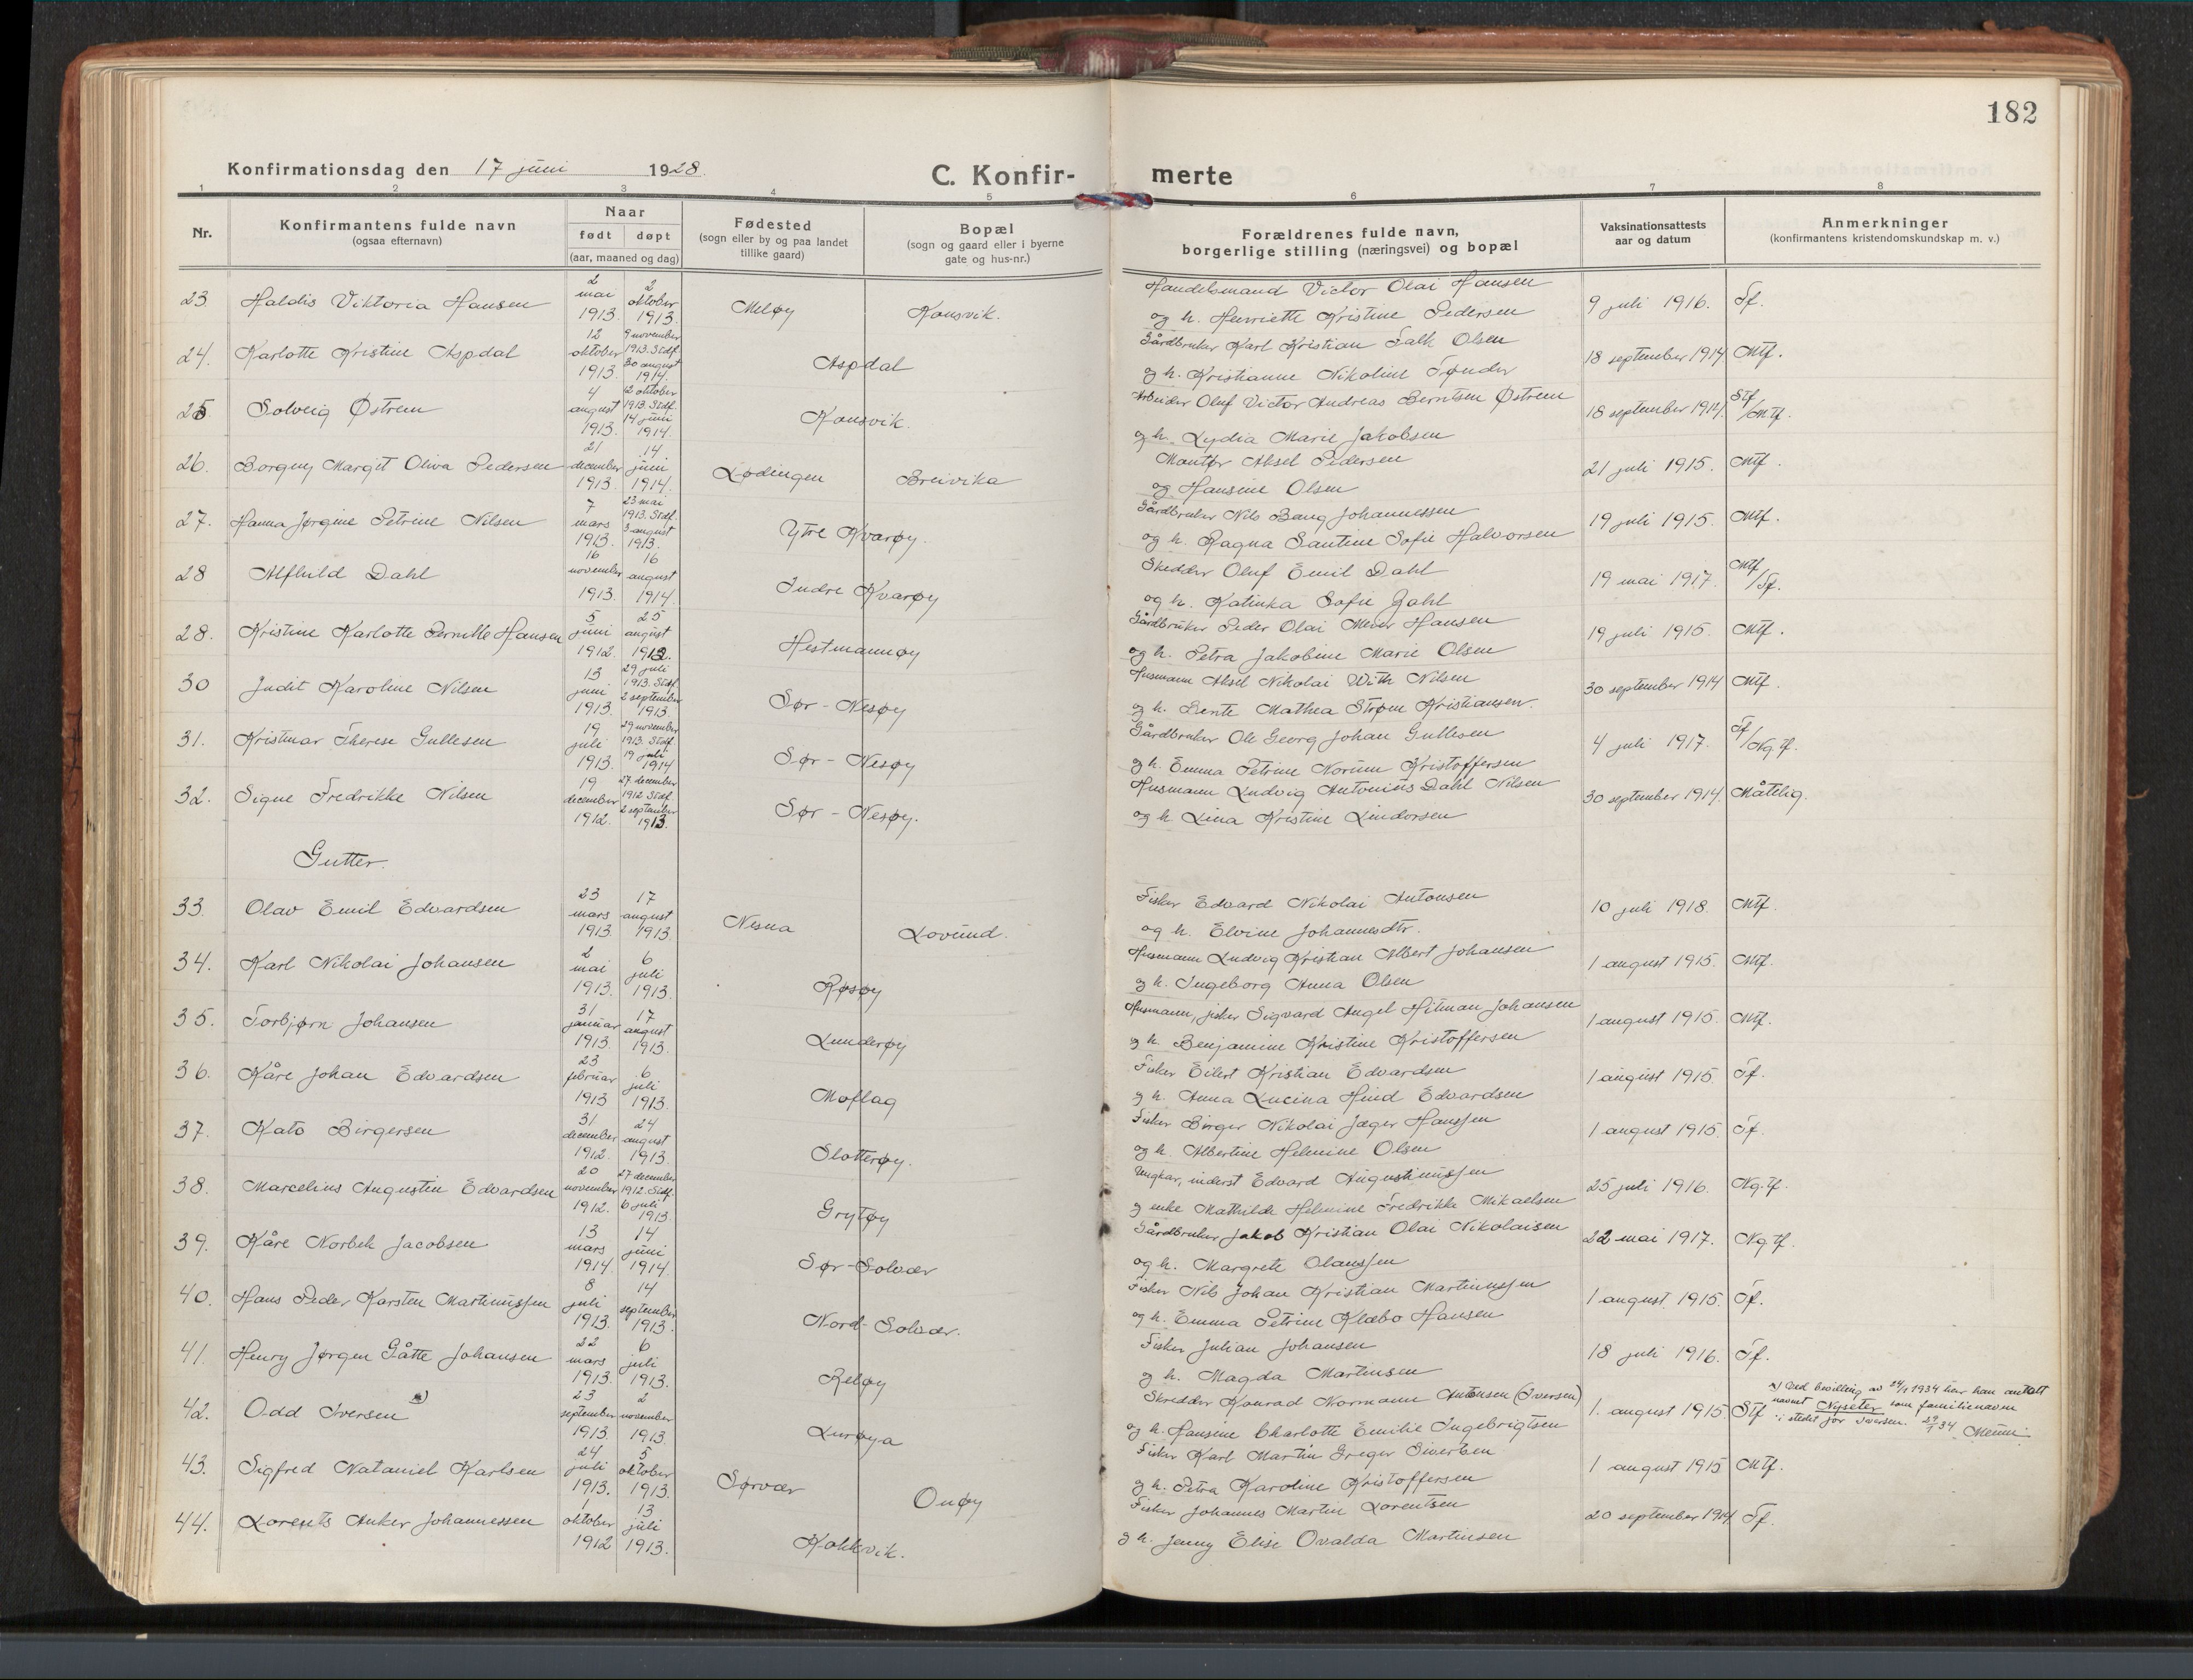 182
Konfirmationsdag den 17 juni 1928.
C. Konfir-
merte
1 2 3 4 5 6 7 8
Nr.
Konfirmantens fulde navn
(ogsaa efternavn)
Naar
født døpt
(aar, maaned og dag)
Fødested
(sogn eller by og paa landet
tillike gaard)
Bopæl
(sogn og gaard eller i byerne
gate og hus-nr.)
Forældrenes fulde navn,
borgerlige stilling (næringsvei) og bopæl
Vaksinationsattests
aar og datum
Anmerkninger
(konfirmantens kristendomskundskap m. v.)
23 Haldis Viktoria Hansen 2 mai 1913. 2 oktober 1913. Meløy Konsvik. Handelsmand Victor Olai Hansen
og h. Henriette Kristine Pedersen 9 juli 1916. Tf.
24. Karlotte Kristine Aspdal 12 oktober 1913. 9 november 1913. Stdf. 30 august 1914. Aspdal Gårdbruker Karl Kristian Falk Olsen
og h. Kristianne Nikoline Tønder 18 september 1914. Mtf.
25 Solveig Østrem 4 august 1913. 12 oktober 1913. Stdf. 14 juni 1914. Konsvik. Arbeider Oluf Victor Andreas Berntsen Østrem
og h. Lydia Marie Jakobsen 18 september 1914. Stf/Mtf.
26. Borgny Margit Oliva Pedersen 21 december 1913. 14. juni 1914. Lødingen Breivika Montør Aksel Pedersen
og Hansine Olsen 21 juli 1915. Mtf.
27. Hanna Jørgine Petrine Nilsen 7 mars 1913. 23 mai 1913. Stdf. 3 august 1913. Ytre Kvarøy. Gårdbruker Nils Bang Johannessen
og h. Ragna Santine Sofie Halvorsen 19 juli 1915. Mtf.
28 Alfhild Dahl 16 november 1913. 16 august 1914. Indre Kvarøy Skredder Oluf Emil Dahl
og h. Katinka Sofie Dahl 19 mai 1917. Mtf/Tf.
28. Kristine Karlotte Pernille Hansen 5 juni 1912. 25 august 1912. Hestmannøy Gårdbruker Peder Olai Meier Hansen
og h. Petra Jakobine Marie Olsen 19 juli 1915. Mtf.
30 Judit Karoline Nilsen 13 juni 1913. 29 juli 1913. Stdf. 2 september 1913. Sør-Nesøy Husmann Aksel Nikolai With Nilsen
og h. Bente Mathea Strøm Kristiansen. 30 september 1914 Mtf.
31. Kristmar Therese Gullesen 19 juli 1913. 29 november 1913. Stdf. 19 juli 1914 Sør-Nesøy Gårdbruker Ole Georg Johan Gullesen
og h. Emma Petrine Norum Kristoffersen 4 juli 1917. Tf/Ng.tf.
32. Signe Fredrikke Nilsen 19 december 1912. 27 december 1912 Stdf. 2 september 1913. Sør-Nesøy. Husmann Ludvig Antonius Dahl Nilsen
og h Lina Kristine Lindorsen 30 september 1914. Måtelig.
Gutter.
33. Olav Emil Edvardsen 23 mars 1913. 17 august 1913. Nesna Lovund. Fisker Edvard Nikolai Antonsen
og h. Elvine Johannesdtr. 10 juli 1918. Mtf.
34. Karl Nikolai Johansen 2 mai 1913. 6 juli 1913. Røsøy Husmann Ludvig Kristian Albert Johansen
og h. Ingeborg Anna Olsen 1 august 1915. Mtf.
35. Torbjørn Johansen 31 januar 1913. 17 august 1913. Lunderøy Husmann, fisker Sigvard Angel Hitman Johansen
og h. Benjamine Kristine Kristoffersen 1 august 1915. Mtf.
36. Kåre Johan Edvardsen 23 februar 1913 6 juli 1913. Moflag Fisker Eilert Kristian Edvardsen
og h. Anna Lucina Hind Edvardsen 1 august 1915. Tf.
37. Kato Birgersen 31 december 1912. 24 august 1913. Slotterøy. Fisker Birger Nikolai Jæger Hanssen
og h. Albertine Helmine Olsen 1 august 1915. Tf.
38. Marcelius Augustin Edvardsen 20 november 1912. 27 december 1912. Stdf. 6 juli 1913. Grytøy Ungkar, inderst Edvard Augustinussen
og enke Mathilde Helmine Fredrikke Mikaelsen 25 juli 1916. Ng.tf.
39. Kåre Norbek Jacobsen 13 mars 1914. 14 juni 1914. Sør-Solvær Gårdbruker Jakob Kristian Olai Nikolaisen
og h. Margrete Olaussen 22 mai 1917. Ng.tf.
40. Hans Peder Karsten Martinussen 8 juli 1913. 14 september 1913. Nord-Solvær. Fisker Nils Johan Kristian Martinussen
og h. Emma Petrine Klæbo Hansen 1 august. 1915. Tf.
41. Henry Jørgen Gåtte Johansen 22 mars 1913. 6 juli 1913. Reløy Fisker Julian Johansen
og h. Magda Martinsen 18 juli 1916. Tf.
42. Odd Iversen x) 23 september 1913. 2 november 1913. Lurøya Skredder Konrad Normann Antonsen (Iversen)
og h. Hansine Charlotte Emilie Ingebrigtsen 1. august 1915. Stf x) Ved bevilling av 24/1 1934 har han antatt
navnet Nyseter som familienavn
i stedet for Iversen. 29/1 34
43. Sigfred Nataniel Karlsen 24 juli 1913. 5 oktober 1913. Sørvær Onøy Fisker Karl Martin Greger Sivertsen
og h. Petra Karoline Kristoffersen 1 august 1915 Mtf.
44. Lorents Anker Johannessen 1 oktober 1912 13 juli 1913. Kokkvik. Fisker Johannes Martin Lorentsen
og h. Jenny Elise Ovalda Martinsen 20 september 1914 Tf.